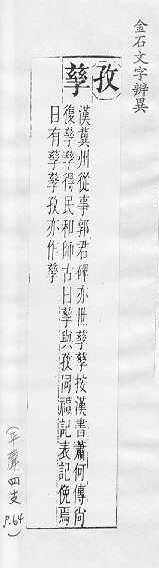 金石文字辨異
孜
孳
漢冀州從事郭君碑亦世孳孳按漢書蕭何傳尚
復孳孳得民和師古曰孳與孜同禮記表記俛焉
日有孳孳孜亦作孳
(平聲四支 P.64)